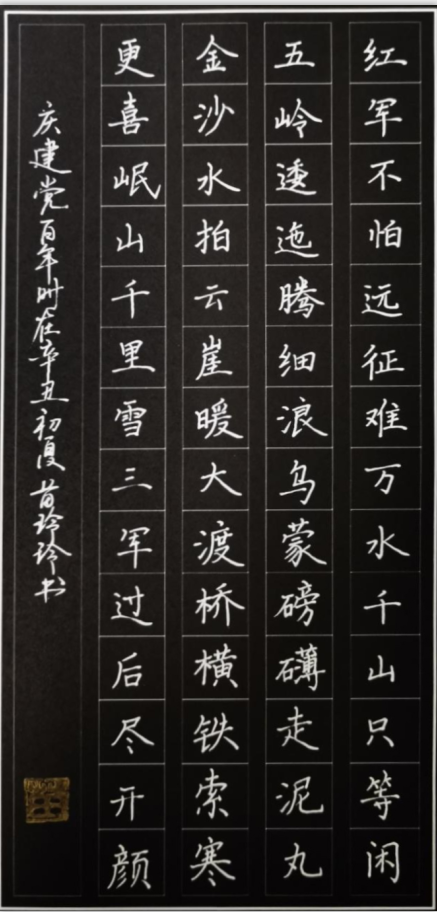 红军不怕远征难万水千山只等闲
五岭逶迤腾细浪乌蒙磅礴走泥丸
金沙水拍云崖暖大渡桥横铁索寒
更喜岷山千里雪三军过后尽开颜
庆建党百年时在辛丑初夏苗玲玲书